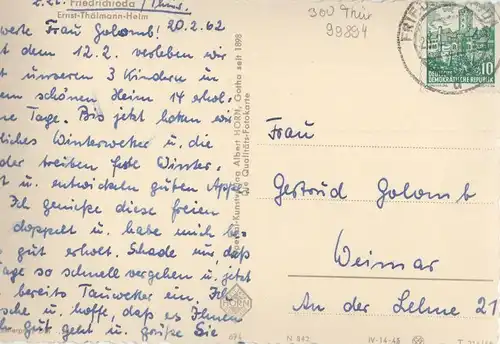 Friedrichroda / Thür.
Ernst-Thälmann-Heim
werte Frau Golomb! 20.2.62
dem 12.2. verleben wir
unseren 3 Kindern in
schönen Heim 14 erhol-
ne Tage. Bis jetzt haben wir
liches Winterwetter u. die
der treiben Winter-
u. entwickeln guten Appe
Ich genieße diese freien
doppelt u. habe mich be-
gut erholt. Schade nur, daß
Tage so schnell vergehen u. jetzt
bereits Tauwetter ein. Ich
sche u. hoffe, daß es Ihnen
gut geht u. grüße Sie
Kunstverlag Albert HORN, Gotha seit 1898
Die Qualitäts-Fotokarte
HORN
300 Thür
99894
FRIE
DEUTSCHE
DEMOKRATISCHE REPUBLIK
10
Frau
Gertrud Golomb
Weimar
An der Lehne 21
N 842
IV-14-45